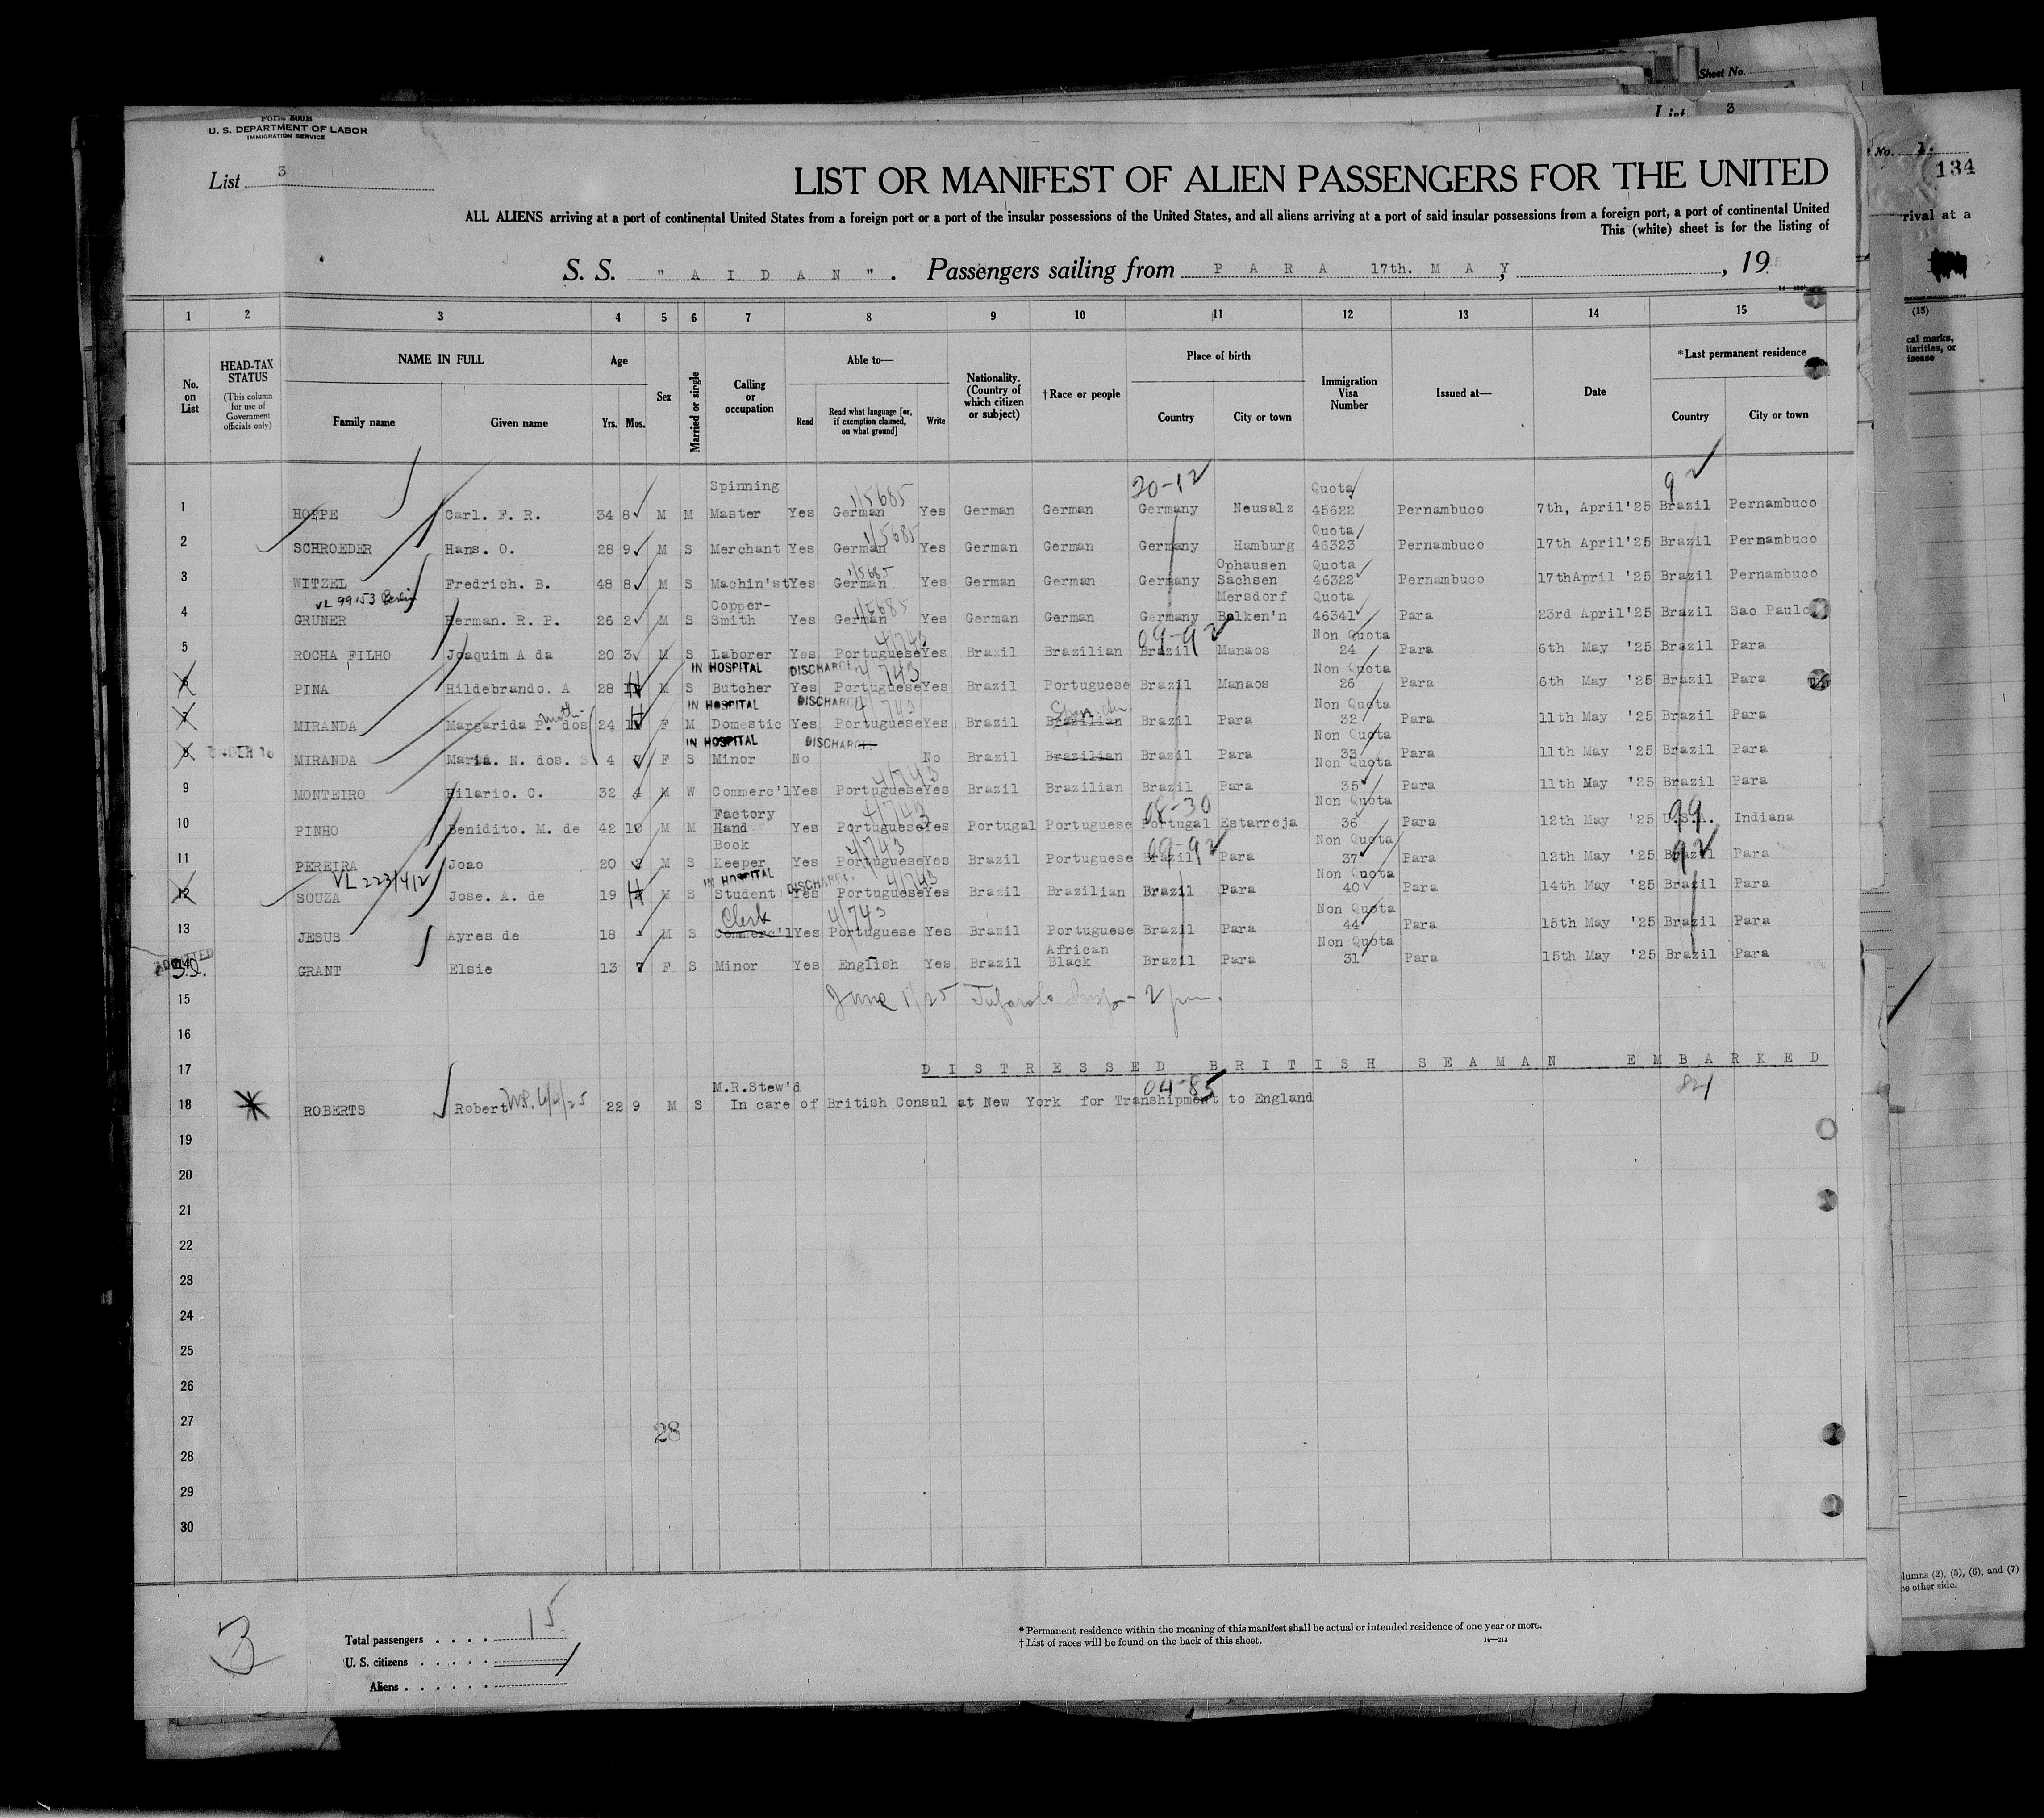 Sheet No.
List 3
No. 1.
134
rival at a
Form 500B
U. S. DEPARTMENT OF LABOR
IMMIGRATION SERVICE
List 3
LIST OR MANIFEST OF ALIEN PASSENGERS FOR THE UNITED
ALL ALIENS arriving at a port of continental United States from a foreign port or a port of the insular possessions of the United States, and all aliens arriving at a port of said insular possessions from a foreign port, a port of continental United
This (white) sheet is for the listing of
S. S. " A I D A N ". Passengers sailing from P A R A 17th. M A Y, , 19
1 2 3 4 5 6 7 8 9 10 11 12 13 14 15
(15)
cal marks,
liarities, or
isease
No. on List
HEAD-TAX STATUS
(This column for use of Government officials only)
NAME IN FULL
Family name Given name
Age
Yrs. Mos.
Sex
Married or single
Calling or occupation
Able to—
Read
Read what language [or, if exemption claimed, on what ground]
Write
Nationality. (Country of which citizen or subject)
†Race or people
Place of birth
Country City or town
Immigration Visa Number
Issued at—
Date
*Last permanent residence
Country City or town
Spinning 1/5685 20-12 Quota 9
1 HOPPE Carl. F. R. 34 8 M M Master Yes German Yes German German Germany Neusalz 45622 Pernambuco 7th, April'25 Brazil Pernambuco
1/5685 Quota
2 SCHROEDER Hans. O. 28 9 M S Merchant Yes German Yes German German Germany Hamburg 46323 Pernambuco 17th April'25 Brazil Pernambuco
1/5685 Ophausen Quota
3 WITZEL Fredrich. B. 48 8 M S Machin'st Yes German Yes German German Germany Sachsen 46322 Pernambuco 17thApril '25 Brazil Pernambuco
VL 99153 Berlin Copper- 1/5685 Mersdorf Quota
4 GRUNER Herman. R. P. 26 2 M S Smith Yes German Yes German German Germany Bolken'n 46341 Para 23rd April'25 Brazil Sao Paulo
4/743 09-92 Non Quota
5 ROCHA FILHO Joaquim A da 20 3 M S Laborer Yes Portuguese Yes Brazil Brazilian Brazil Manaos 24 Para 6th May '25 Brazil Para
IN HOSPITAL DISCHARGED 4/743 Non Quota
6 PINA Hildebrando. A 28 M S Butcher Yes Portuguese Yes Brazil Portuguese Brazil Manaos 26 Para 6th May '25 Brazil Para
IN HOSPITAL DISCHARGED 4/743 Non Quota
7 MIRANDA Margarida P. dos 24 F M Domestic Yes Portuguese Yes Brazil Brazilian Brazil Para 32 Para 11th May '25 Brazil Para
IN HOSPITAL DISCHARGED Non Quota
8 MIRANDA Maria. N. dos. S 4 7 F S Minor No No Brazil Brazilian Brazil Para 33 Para 11th May '25 Brazil Para
4/743 Non Quota
9 MONTEIRO Hilario. C. 32 4 M W Commerc'l Yes Portuguese Yes Brazil Brazilian Brazil Para 35 Para 11th May '25 Brazil Para
Factory 4/743 08-30 Non Quota 99
10 PINHO Benidito. M. de 42 10 M M Hand Yes Portuguese Yes Portugal Portuguese Portugal Estarreja 36 Para 12th May '25 U.S.A. Indiana
Book 4/743 09-92 Non Quota 92
11 PEREIRA Joao 20 M S Keeper Yes Portuguese Yes Brazil Portuguese Brazil Para 37 Para 12th May '25 Brazil Para
VL 223/412 IN HOSPITAL DISCHARGED 4/743 Non Quota
12 SOUZA Jose. A. de 19 M S Student Yes Portuguese Yes Brazil Brazilian Brazil Para 40 Para 14th May '25 Brazil Para
Clerk 4/743 Non Quota
13 JESUS Ayres de 18 - M S Commerc'l Yes Portuguese Yes Brazil Portuguese Brazil Para 44 Para 15th May '25 Brazil Para
ADMITTED African Non Quota
14 GRANT Elsie 13 7 F S Minor Yes English Yes Brazil Black Brazil Para 31 Para 15th May '25 Brazil Para
15 June 1/25 - 2 pm.
16
17 DISTRESSED BRITISH SEAMAN EMBARKED
M.R.Stew'd 04-85
18 ROBERTS Robert 22 9 M S In care of British Consul at New York for Transhipment to England
19
20
21
22
23
24
25
26
27
28
28
29
30
lumns (2), (5), (6), and (7)
he other side.
3
Total passengers 15
U. S. citizens
Aliens
* Permanent residence within the meaning of this manifest shall be actual or intended residence of one year or more.
† List of races will be found on the back of this sheet.
14—213